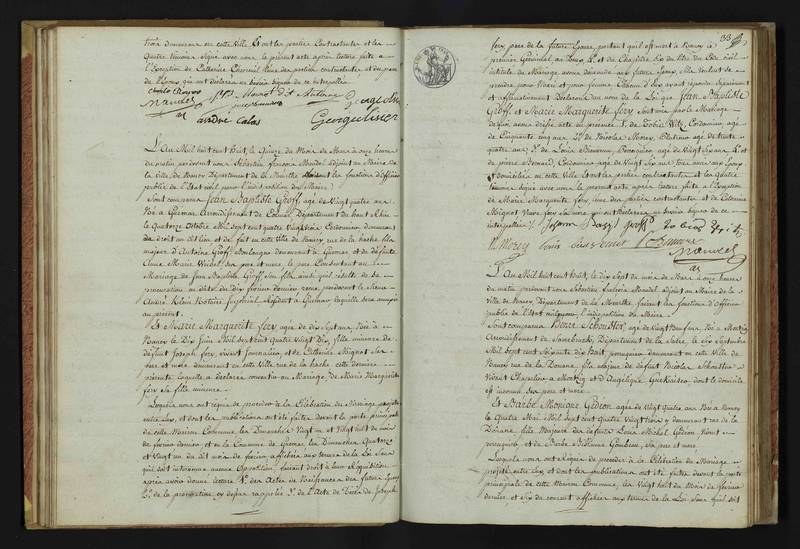 trois demeurans en cette Ville, Et ont les parties Contractantes et les
quatre témoins signé avec nous le présent acte après lecture faite à
l'Exception de Catherine
de l'Epoux qui ont déclaré ne savoir
nandel
andré Calas
L'An Mil huit cent huit, le Quinze du Mois de Mars à onze heures
du matin pardevant nous Sébastien françois Mandel adjoint au Maire de la
Ville de Nancy Département de la Meurthe faisant les fonctions d'officier
public de l'Etat civil pour l'indisposition du Maire
Sont comparus Jean Baptiste Groff, agé de vingt quatre ans
Né à Guemar Arrondissement de Colmar Département du haut Rhin
le Quatorze Octobre Mil sept cent quatre vingt trois Cordonnier demeurant
de droit au dit lieu et de fait en cette Ville de Nancy rue de la hache fils
majeur d'Antoine Groff, Boulanger demeurant à Guemar et de défunte
Anne Marie ses père et mère, le père Consentant au
Mariage de Jean Baptiste Groff son fils, ainsi qu'il résulte de sa
procuration en date du dix février dernier reçue pardevant le Sieur
André Klein Notaire Impérial Résidant à Guemar laquelle sera annexée
au présent.
Et Marie Marguerite fery agée de dix sept ans Née à
Nancy le Dix Juin Mil sept cent quatre vingt Dix, fille mineure de
défunt Joseph fery, vivant Journalier, et de Catherine Mignot ses
père et mère demeurant en cette Ville rue de la hache cette dernière
présente laquelle a déclaré consentir au Mariage de Marie Marguerite
fery sa fille mineure.
Lesquels nous ont requis de procéder à la Célébration du Mariage projetté
entre eux, et dont les publications ont été faites devant la porte principale
de cette Maison Commune les Dimanches Vingt un et vingt huit du mois
de février dernier et en la Commune de Guemar les Dimanches Quatorze
et Vingt un du dit mois de février, affichées aux termes de la Loi sans
qu'il soit intervenu aucune Opposition, faisant droit à leur Réquisition
après avoir donné lecture 1°. des Actes de Naissances des futurs Epoux
2°. de la procuration cy dessus rappellée 3°. de l'Acte de Décès de Joseph
33
fery père de la future Epouse, portant qu'il est mort à Nancy le
premier Germinal an et du Chapitre Six du titre du Code civil
intitulé du Mariage avons demandé aux futurs Epoux s'ils veulent se
prendre pour Mari et pour femme, Chacun d'eux ayant répondu séparément
et affirmativement Déclarons au nom de la Loi que Jean Baptiste
Groff et Marie Marguerite fery sont unis par le Mariage
de quoi avons dressé acte en présence
de Cinquante cinq ans 2°. de Nicolas Morey, Platineur agé de trente
quatre ans 3°. de Louis Cordonnier agé de Vingt six ans 4°. et
de pierre Cordonnier agé de Vingt Six ans tous amis aux Epoux
et domiciliés en cette Ville Et ont les parties contractantes et les quatre
témoins signé avec nous le présent acte après lecture faite à l'Exception
de Marie Marguerite fery une des parties contractantes et de Catherine
Mignot Veuve fery sa mère qui ont déclaré ne savoir signer de ce
interpellées.
N. Morey
nandel
L'An Mil huit cent huit, le dix sept du mois de Mars à onze heures
du matin pardevant nous Sébastien françois Mandel adjoint au Maire de la
Ville de Nancy, Département de la Meurthe, faisant les fonctions d'officier
public de l'Etat civil pour l'indisposition du Maire.
Sont comparus Pierre Schouster, agé de vingt Neuf ans, Né à
Arrondissement de Sarrebruck Département de la Sarre, le dix Septembre
Mil sept cent soixante dix huit perruquier demeurant en cette Ville de
Nancy rue de la Douane, fils majeur de défunt Nicolas Schouster
vivant à et d'Angélique dont le domicile
est inconnu ses père et mère
Et Barbe Monique Gédeon agée de vingt Quatre ans Née à Nancy
le Quatre Mai Mil sept cent Quatre Vingt trois y demeurant rue de la
Douane fille Majeure de défunt Louis Michel Gédeon vivant
perruquier et de Barbe ses père et mère.
Lesquels nous ont Requis de procéder à la Célébration du Mariage
projetté entre eux, et dont les publications ont été faites devant la porte
principale de cette Maison Commune, les Vingt huit du Mois de février
dernier et Six du courant affichées aux termes de la Loi Sans qu'il soit